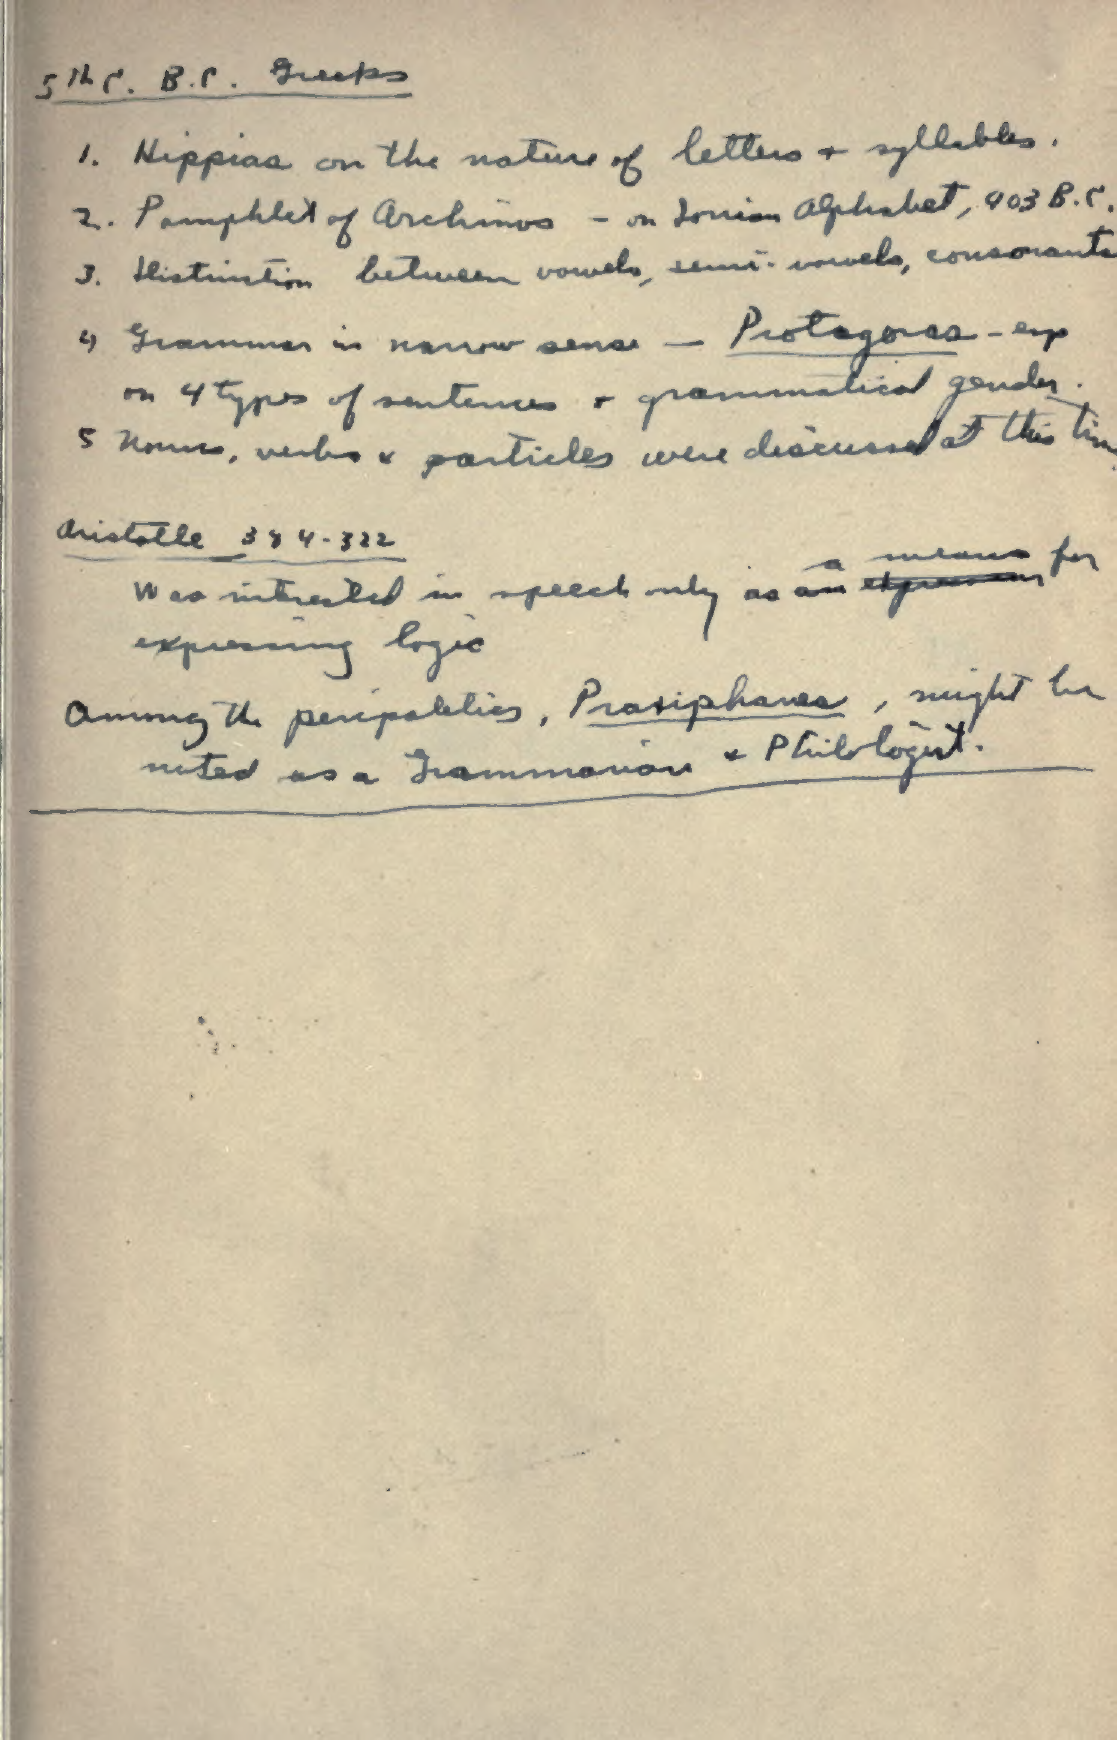 5th C. B.C. Greeks
1. Hippias on the nature of letters + syllables.
2. Pamphlet of Archinos - on Ionian Alphabet, 403 B.C.
3. Distinction between vowels, semi-vowels, consonants
4) Grammar in narrow sense — Protagoras - esp
on 4 types of sentences + grammatical gender.
5 Nouns, verbs + particles were discussed at this time
Aristotle 384-322
a means for
Was interested in speech only as an expression
expressing logic
Among the peripatetics, Praxiphanes, might be
noted as a Grammarian + Philologist.